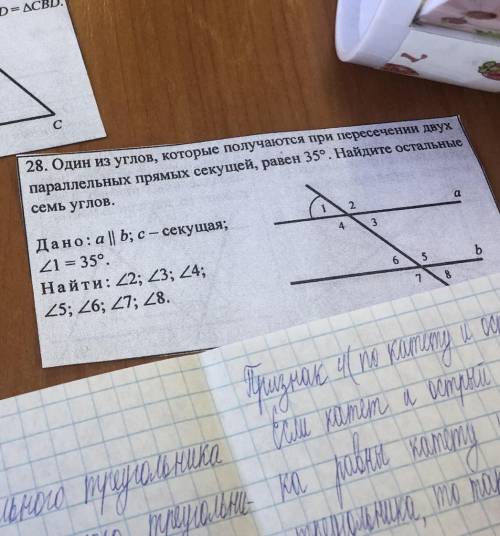 D = ΔCBD.
C
28. Один из углов, которые получаются при пересечении двух
параллельных прямых секущей, равен 35°. Найдите остальные
семь углов.
Дано: a || b; c – секущая;
∠1 = 35°.
Найти: ∠2; ∠3; ∠4;
∠5; ∠6; ∠7; ∠8.
a
1 2
4 3
b
6 5
7 8
Признак 4( по катету и
Если катет и острый
ка равны катету
треугольника, то
треугольника